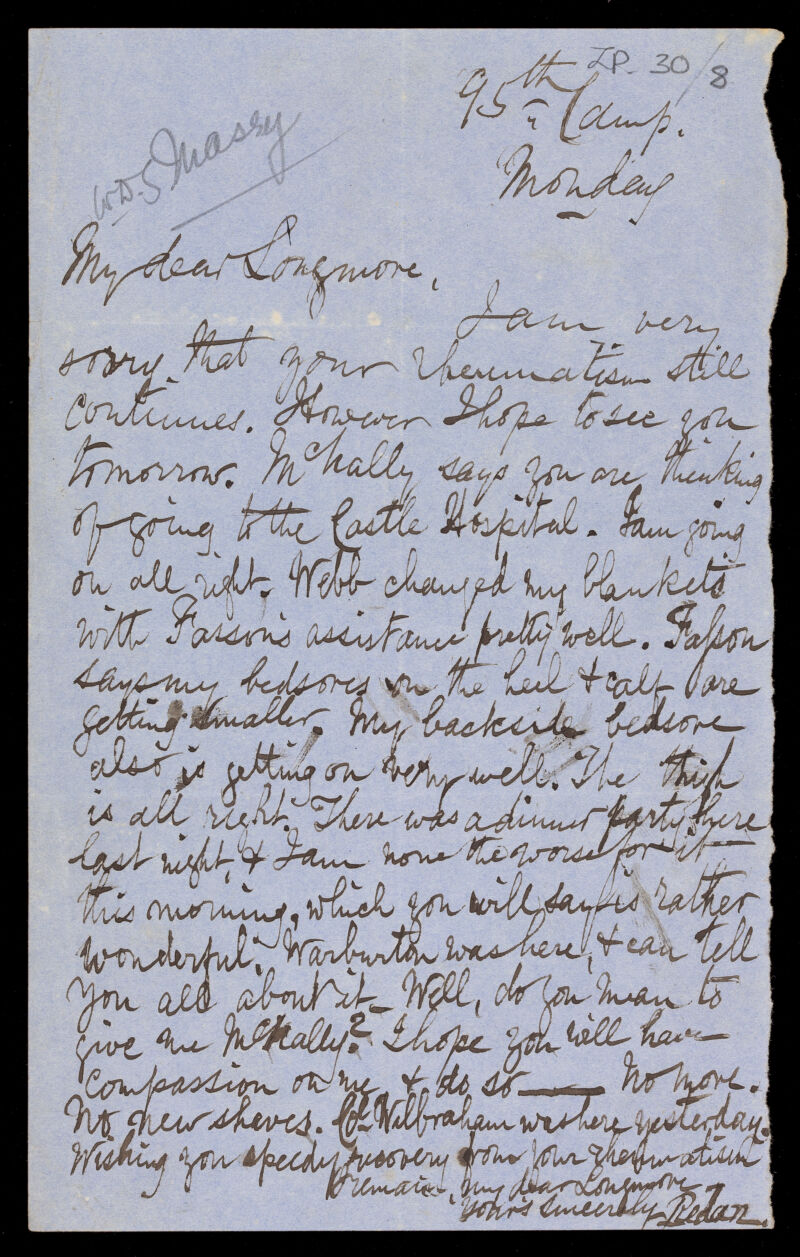 LP. 30/8
95th Camp.
Monday
W.D.S Massy
My dear Longmore,
I am very
sorry that your rheumatism still
continues. However I hope to see you
tomorrow. McNally says you are thinking
of going to the Castle Hospital. I am going
on all right. Webb changed my blankets
with Fasson's assistance pretty well. Fasson
says my bedsores on the heel & calf are
getting smaller. My backside bedsore
also is getting on very well. The thigh
is all right. There was a dinner party here
last night, & I am none the worse for it
this morning, which you will say is rather
wonderful. Warburton was here, & can tell
you all about it_ Well, do you mean to
give me McNally? I hope you will have
compassion on me & do so —— No more.
No new shaves. Col. Wilbraham was here yesterday.
Wishing you speedy recovery from your rheumatism
I remain, my dear Longmore
Yours sincerely Redan.